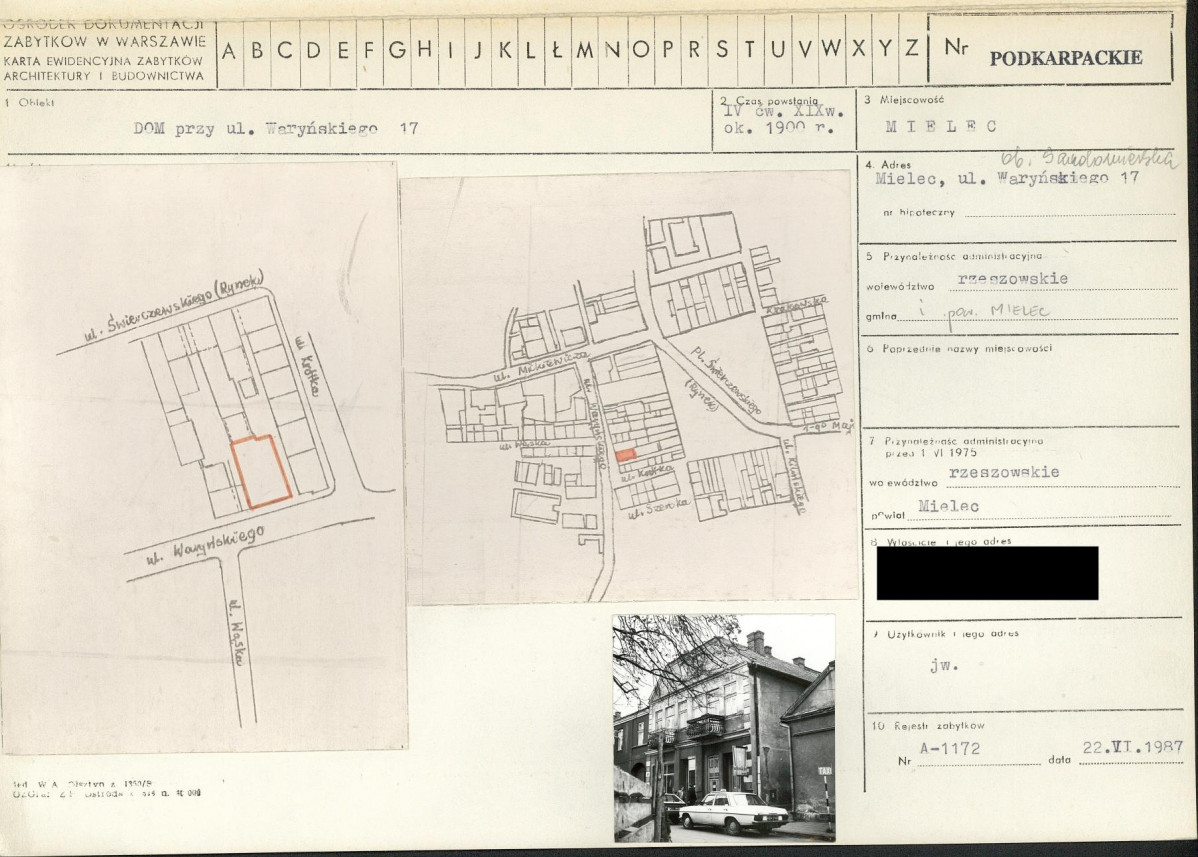 OŚRODEK DOKUMENTACJI
ZABYTKÓW W WARSZAWIE
KARTA EWIDENCYJNA ZABYTKÓW
ARCHITEKTURY I BUDOWNICTWA
A B C D E F G H I J K L Ł M N O P R S T U V W X Y Z
Nr
PODKARPACKIE
1 Obiekt
DOM przy ul. Waryńskiego 17
2 Czas powstania
IV ćw. XIXw.
ok. 1900 r.
3 Miejscowość
MIELEC
ob. Sandomierska
4. Adres
Mielec, ul. Waryńskiego 17
nr hipoteczny
5 Przynależność administracyjna
województwo rzeszowskie
gmina i pow. MIELEC
6 Poprzednie nazwy miejscowości
7 Przynależność administracyjna
przed 1 VI 1975
województwo rzeszowskie
powiat Mielec
8 Właściciel i jego adres
9 Użytkownik i jego adres
jw.
10 Rejestr zabytków
Nr A-1172 data 22.VI.1987
ul. Świerczewskiego (Rynek)
ul. Krótka
ul. Waryńskiego
ul. Wąska
ul. Mickiewicza
Pl. Świerczewskiego
(Rynek)
Krakowska
1-go Maja
ul. Waryńskiego
ul. Wąska
ul. Krótka
ul. Szeroka
ul. Kilińskiego
TAXI